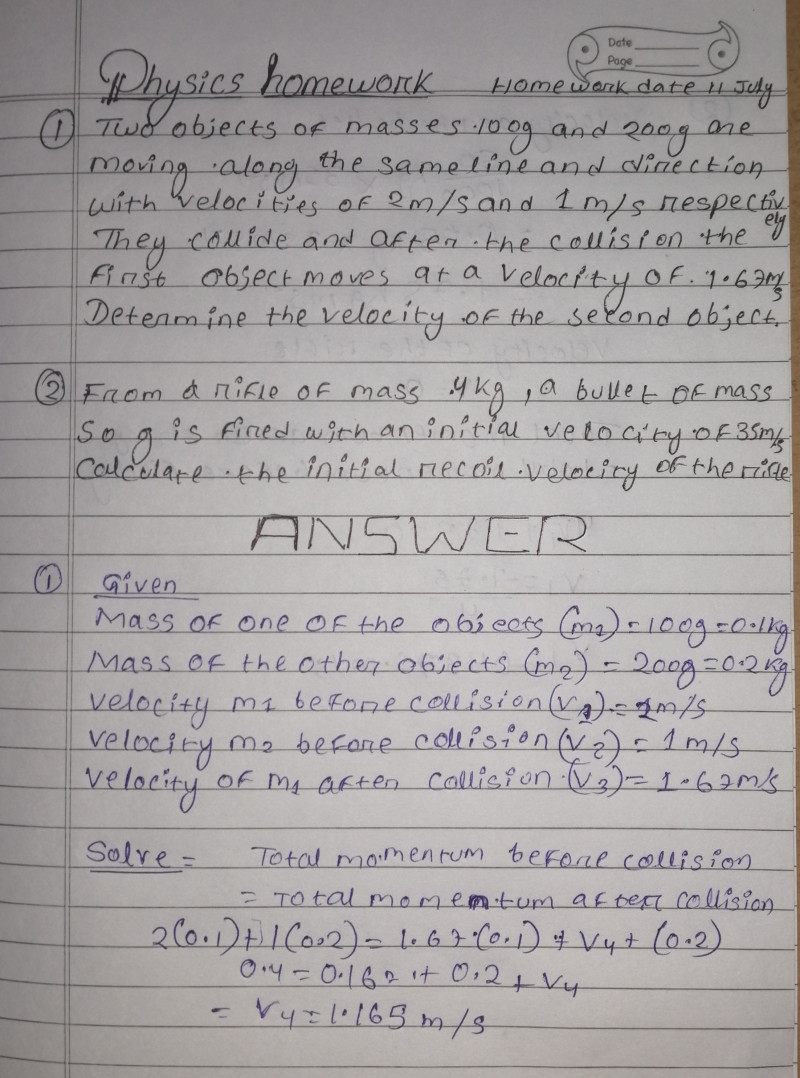 Date
Page
Physics homework Homework date 11 July
① Two objects of masses 100g and 200g are
moving along the same line and direction
with velocities of 2m/s and 1 m/s respectively
They collide and after the collision the
first object moves at a velocity of 1.67m/s
Determine the velocity of the second object.
② From a rifle of mass 4kg, a bullet of mass
50 g is fired with an initial velocity of 35m/s
Calculate the initial recoil velocity of the rifle
ANSWER
① Given
Mass of one of the objects (m1) = 100g = 0.1kg
Mass of the other objects (m2) = 200g = 0.2kg
velocity m1 before collision (v1) = 2m/s
velocity m2 before collision (v2) = 1m/s
velocity of m1 after collision (v3) = 1.67m/s
Solve = Total momentum before collision
= Total momentum after collision
2(0.1)+1(0.2) = 1.67(0.1) + V4 + (0.2)
0.4 = 0.167 + 0.2 + V4
= V4 = 1.165 m/s